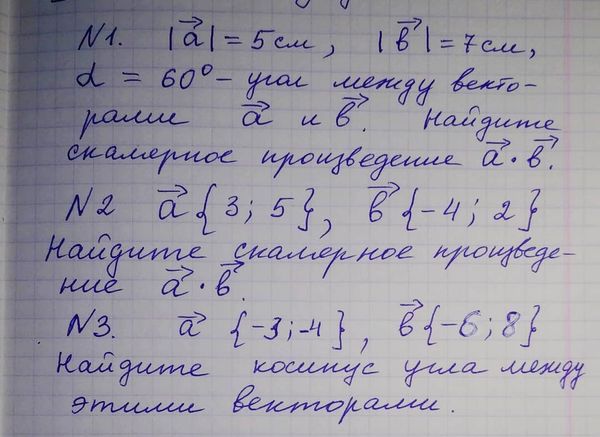 N1. |a⃗| = 5см, |b⃗| = 7см,
α = 60° – угол между векто-
рами a⃗ и b⃗. Найдите
скалярное произведение a⃗ · b⃗.
N2 a⃗ {3; 5}, b⃗ {-4; 2}
Найдите скалярное произведе-
ние a⃗ · b⃗.
N3. a⃗ {-3; -4}, b⃗ {-6; 8}
Найдите косинус угла между
этими векторами.